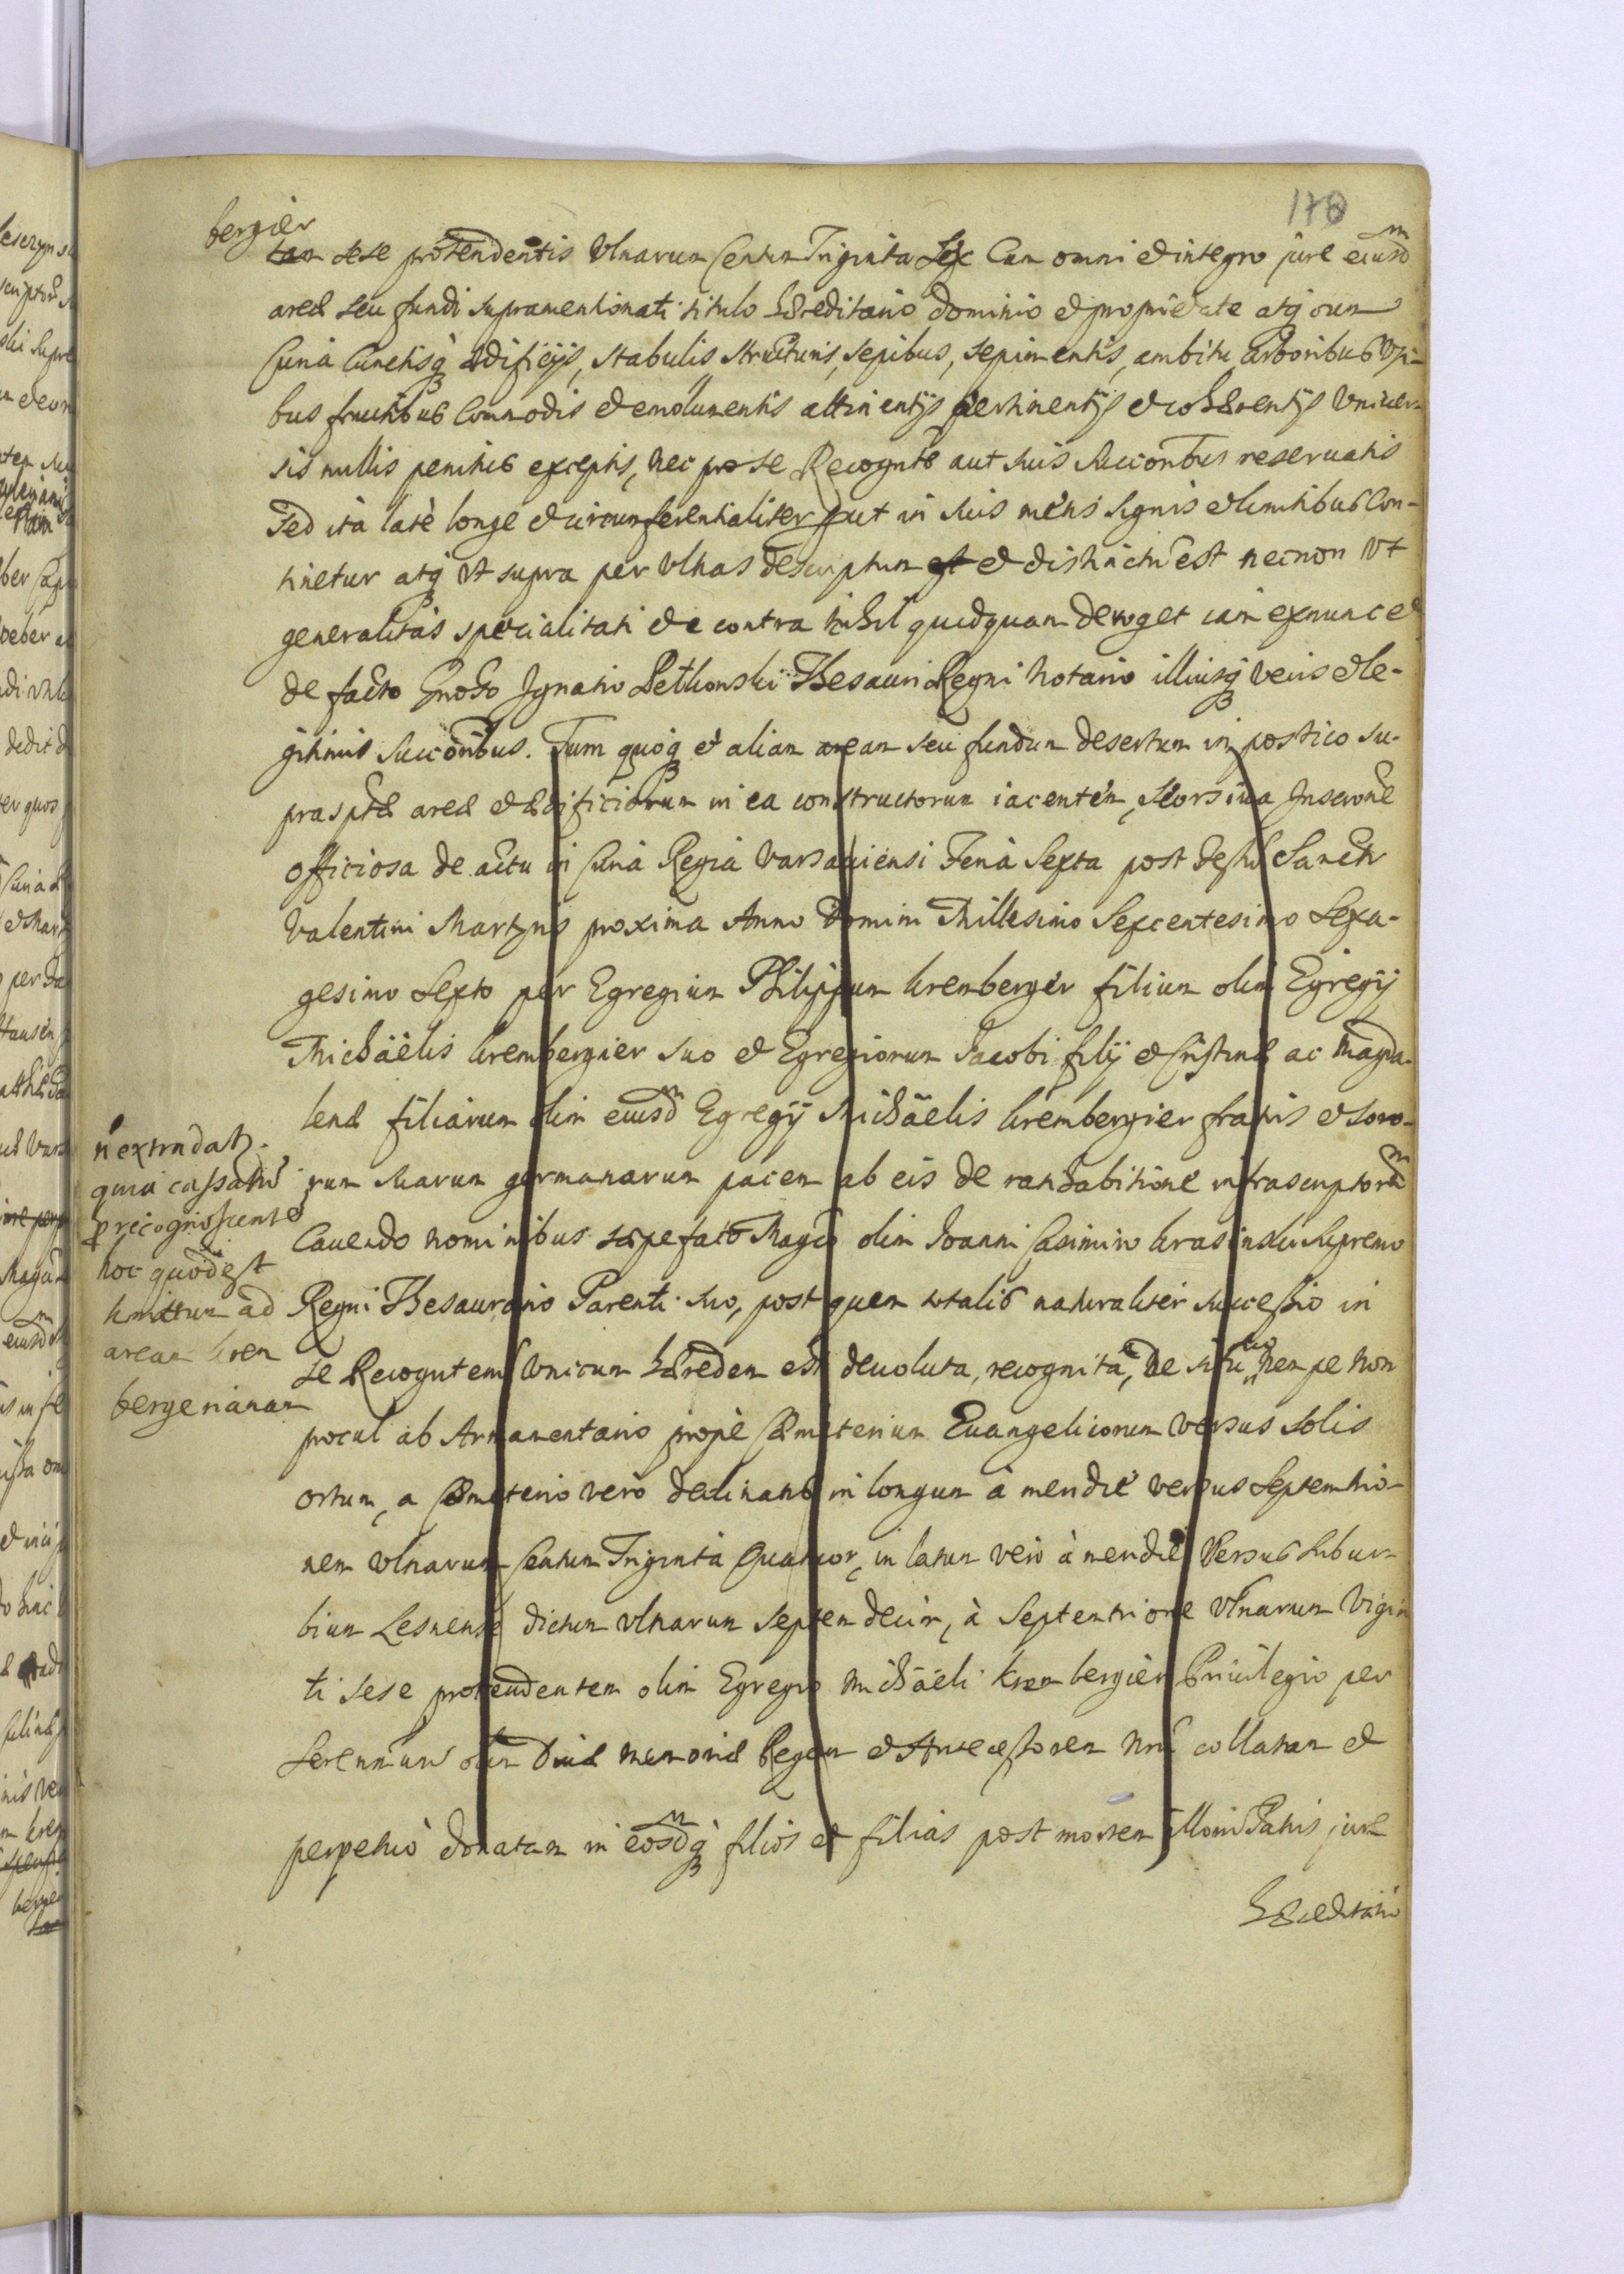 178
bergier
tan sese protendentis Ulnarum Centum Triginta Sex Cum omni et integro jure eiusdm
areæ seu fundi supramentionati titulo hæreditario dominio et proprietate atq cum
Curia Cunctisq ædificijs, stabulis structuris, sepibus, sepimentis, ambitu arboribus Usi-
bus fructibus Commodis et emolumentis attinentijs pertinentijs et cohærentijs Univer-
sis nullis penitus exceptis, nec pro se Recognte aut suis succoribus reservatis
Sed ita latè longe et circumferentialiter put in suis metis signis et limitibus Con-
tinetur atq Vt supra per Vlnas descriptum est et distinctu est necnon Vt
generalitas specialitati et e contra nihil quidquam deroget iam exnunc et
de facto Gnoso Ignatio Pethowski Thesauri Regni Notario illiusq veris et le-
gitimis succoribus. Tum quoq et aliam aream seu fundum desertum in postico su-
praspctæ areæ et ædificiorum in ea constructorum iacentem, seorsiva Inscrone
officiosa de actu in Curia Regia Varsaviensi Feria Sexta post festu Sancti
Valentini Martyris proxima Anno Domini Millesimo Sexcentesimo Sexa-
gesimo Sexto per Egregium Philippum Krembergier filium olim Egregij
Michäelis Krembergier suo et Egregiorum Jacobi filij et Cristinæ ac Magda-
lenæ filiarum olim eiusdm Egregij Michäelis Krembergier fratris et soro-
rum suarum germanarum pacem ab eis de ratihabitione infrascriptordm
Cavendo nominibus sæpefato Magco olim Joanni Casimiro Krasinski Supremo
Regni Thesaurario Parenti suo, post quem totalis naturaliter successio in
se Recogntem Unicum hæredem est devoluta, recognita, de situ suo nempe non
procul ab Armamentario propè Cæmiterium Evangelicorum versus Solis
ortum, a Cæmiterio verò declinans in longum à meridie versus Septemtrio-
nem Ulnarum Centum Triginta Quatuor, in latum vero à meridie Versus subur-
bium Lesnense dictum Ulnarum Septemdecim, à Septentrione Ulnarum Vigin
ti sese protendentem olim Egregio Michäeli Krembergier Privilegio per
Serennmum olim Divæ memoriæ Regem et Antecessorem Nrm collatam et
perpetuò donatam in eosdmq filios et filias post mortem illorum Patris jure
Hæreditario
n extradatz
quia cassatus
p recognoscente
hoc quod est
lineatum ad
aream Krem
bergerianam